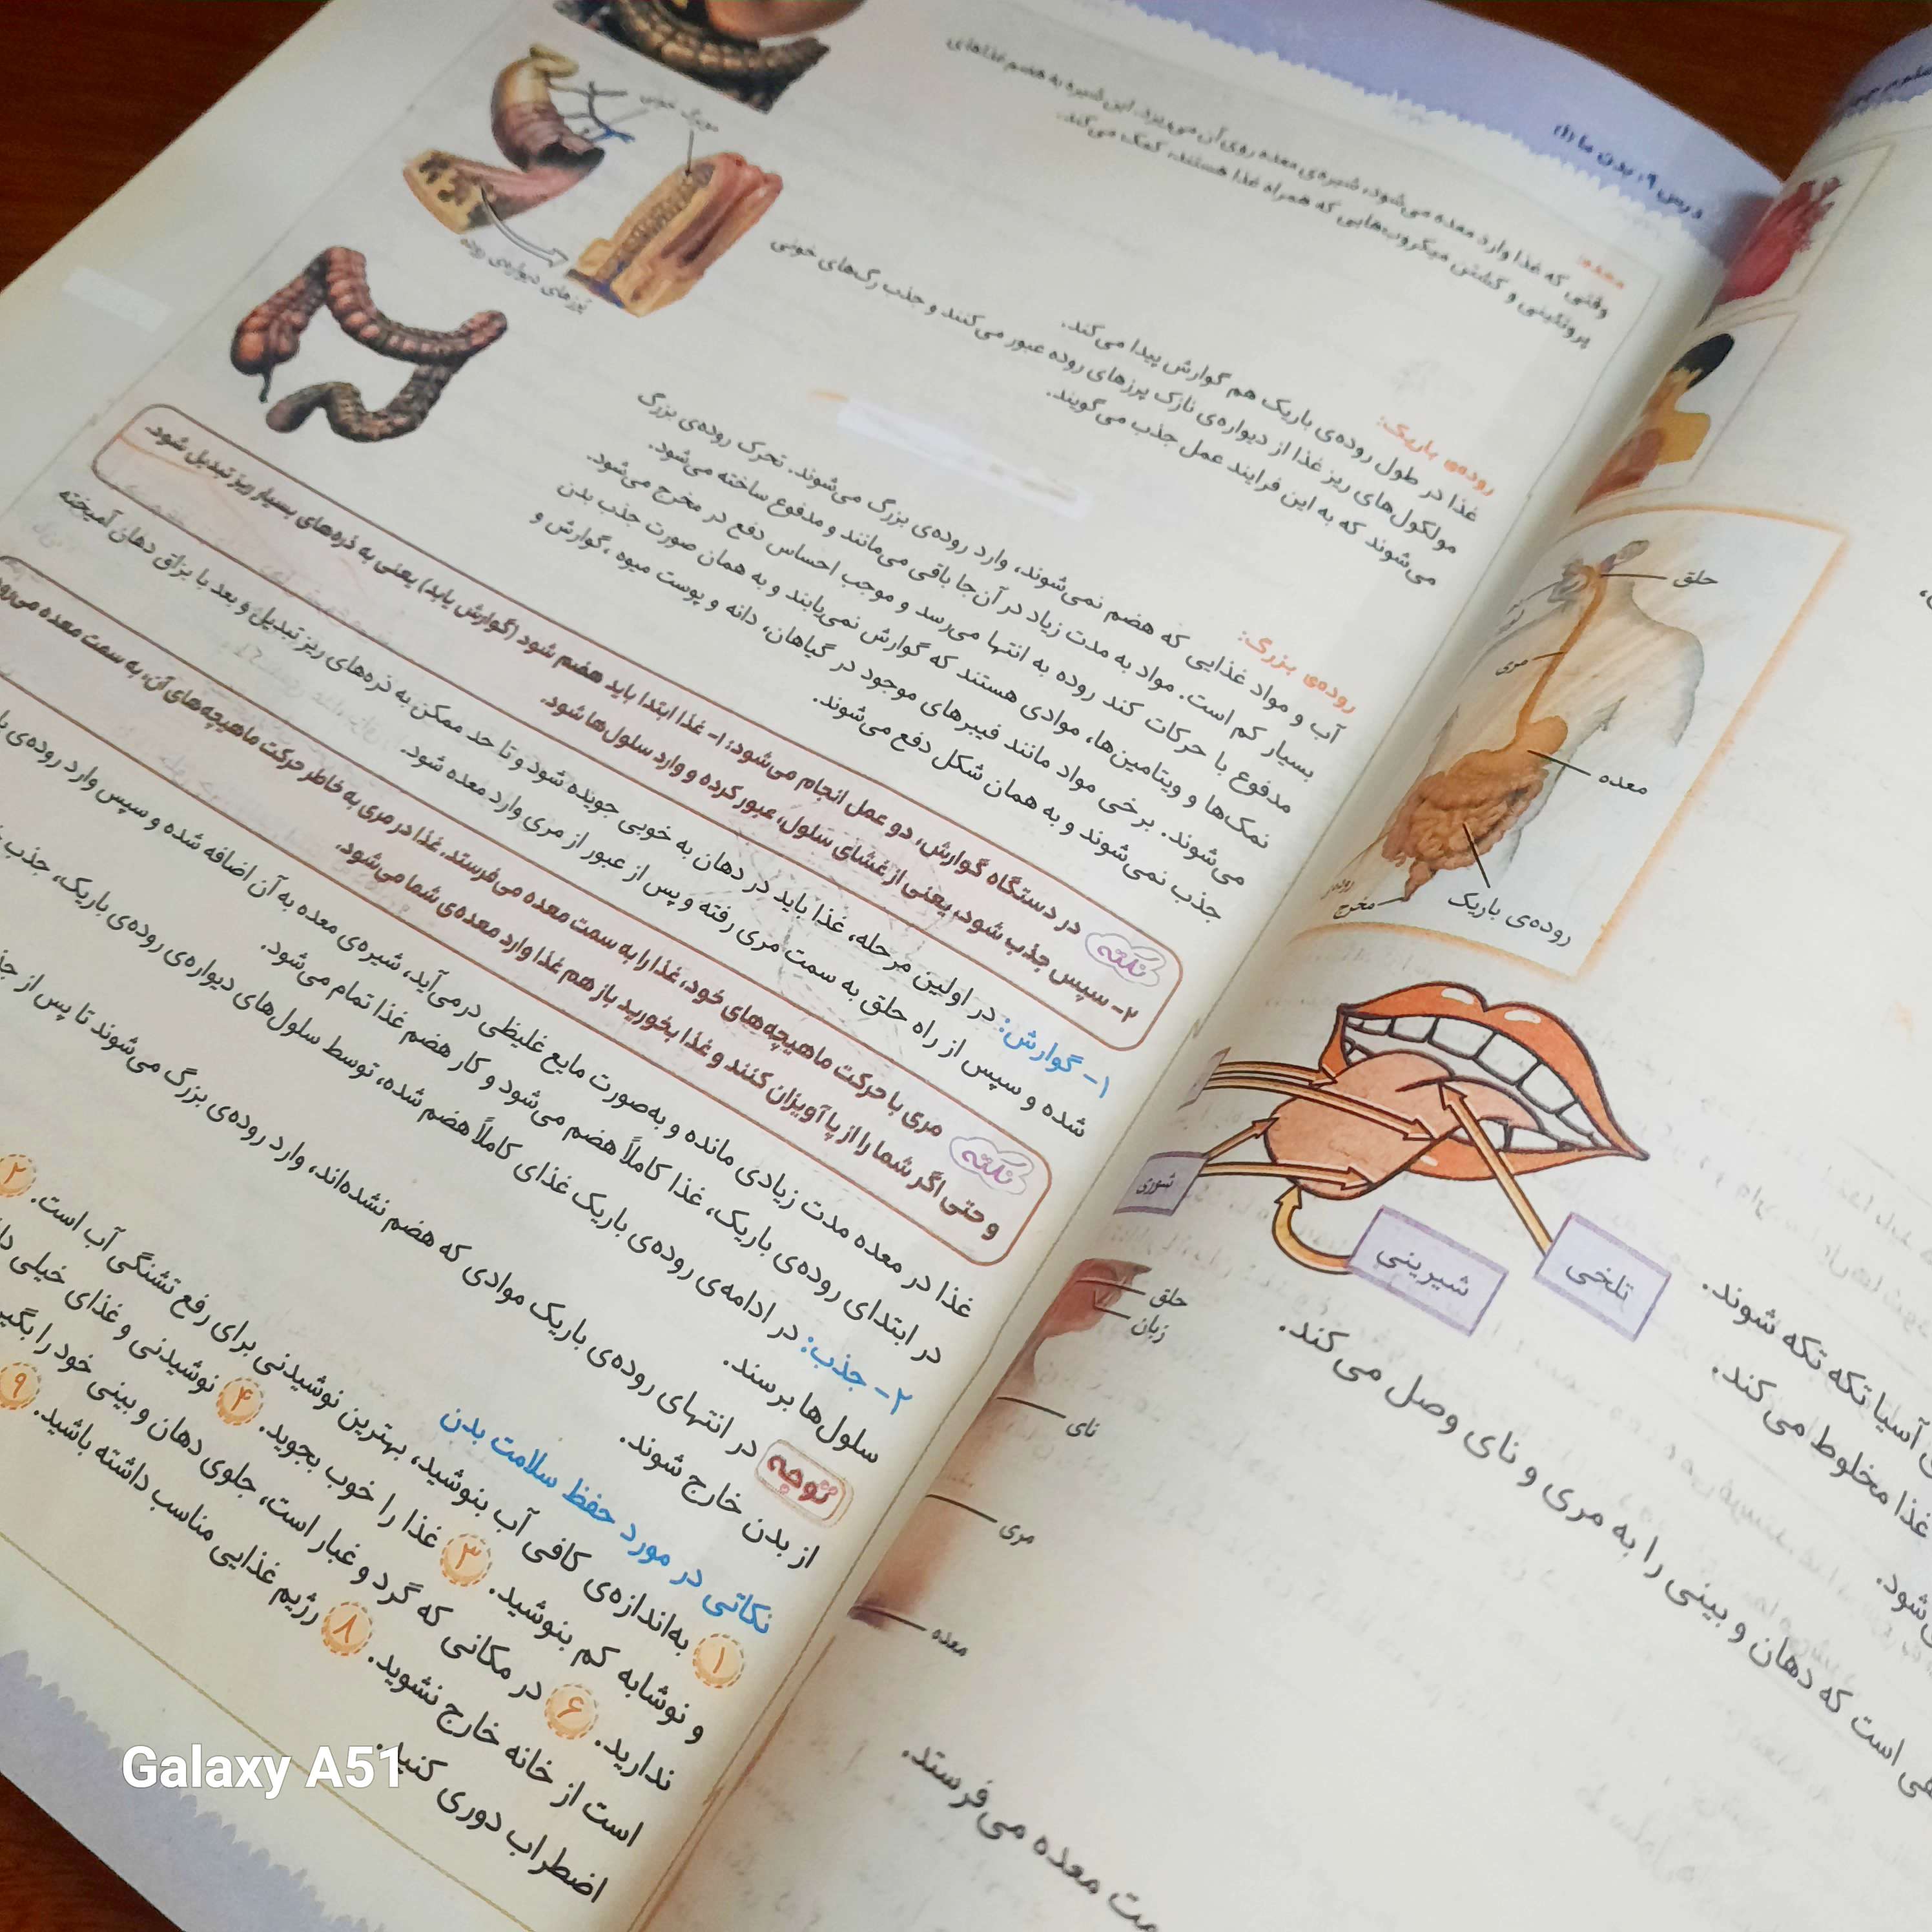 درس ۹: بدن ما (۱)
معده:
وقتی که غذا وارد معده می‌شود، شیره‌ی معده روی آن می‌ریزد. این شیره به هضم غذاهای
پروتئینی و کشتن میکروب‌هایی که همراه غذا هستند، کمک می‌کند.
مویرگ خونی
پرزهای دیواره‌ی روده
روده‌ی باریک:
غذا در طول روده‌ی باریک هم گوارش پیدا می‌کند.
مولکول‌های ریز غذا از دیواره‌ی نازک پرزهای روده عبور می‌کنند و جذب رگ‌های خونی
می‌شوند که به این فرایند عمل جذب می‌گویند.
روده‌ی بزرگ:
آب و مواد غذایی که هضم نمی‌شوند، وارد روده‌ی بزرگ می‌شوند. تحرک روده‌ی بزرگ
بسیار کم است. مواد به مدت زیاد در آن‌جا باقی می‌مانند و مدفوع ساخته می‌شود.
مدفوع با حرکات کند روده به انتها می‌رسد و موجب احساس دفع در مخرج می‌شود.
نمک‌ها و ویتامین‌ها، موادی هستند که گوارش نمی‌یابند و به همان صورت جذب بدن
می‌شوند. برخی مواد مانند فیبرهای موجود در گیاهان، دانه و پوست میوه، گوارش و
جذب نمی‌شوند و به همان شکل دفع می‌شوند.
نکته در دستگاه گوارش، دو عمل انجام می‌شود: ۱- غذا ابتدا باید هضم شود (گوارش یابد) یعنی به ذره‌های بسیار ریز تبدیل شود.
۲- سپس جذب شود، یعنی از غشای سلول، عبور کرده و وارد سلول‌ها شود.
۱- گوارش: در اولین مرحله، غذا باید در دهان به خوبی جویده شود و تا حد ممکن به ذره‌های ریز تبدیل و بعد با بزاق دهان آمیخته
شده و سپس از راه حلق به سمت مری رفته و پس از عبور از مری وارد معده شود.
نکته مری با حرکت ماهیچه‌های خود، غذا را به سمت معده می‌فرستد. غذا در مری به خاطر حرکت ماهیچه‌های آن، به سمت معده می‌رود
و حتی اگر شما را از پا آویزان کنند و غذا بخورید باز هم غذا وارد معده‌ی شما می‌شود.
غذا در معده مدت زیادی مانده و به‌صورت مایع غلیظی درمی‌آید، شیره‌ی معده به آن اضافه شده و سپس وارد روده‌ی
در ابتدای روده‌ی باریک، غذا کاملاً هضم می‌شود و کار هضم غذا تمام می‌شود.
۲- جذب: در ادامه‌ی روده‌ی باریک غذای کاملاً هضم شده، توسط سلول‌های دیواره‌ی روده‌ی باریک، جذب
سلول‌ها برسند.
توجه در انتهای روده‌ی باریک موادی که هضم نشده‌اند، وارد روده‌ی بزرگ می‌شوند تا پس از
از بدن خارج شوند.
نکاتی در مورد حفظ سلامت بدن
۱ به‌اندازه‌ی کافی آب بنوشید، بهترین نوشیدنی برای رفع تشنگی آب است. ۲
و نوشابه کم بنوشید. ۳ غذا را خوب بجوید. ۴ نوشیدنی و غذای خیلی
ندارید. ۶ در مکانی که گرد و غبار است، جلوی دهان و بینی خود را
است از خانه خارج نشوید. ۸ رژیم غذایی مناسب داشته باشید. ۹
اضطراب دوری کنید.
Galaxy A51
حلق
مری
معده
روده‌ی باریک
مخرج
شوری
شیرینی
تلخی
حلق
زبان
نای
مری
معده
آسیا تکه تکه شوند.
غذا مخلوط می‌کند.
است که دهان و بینی را به مری و نای وصل می‌کند.
معده می‌فرستد.